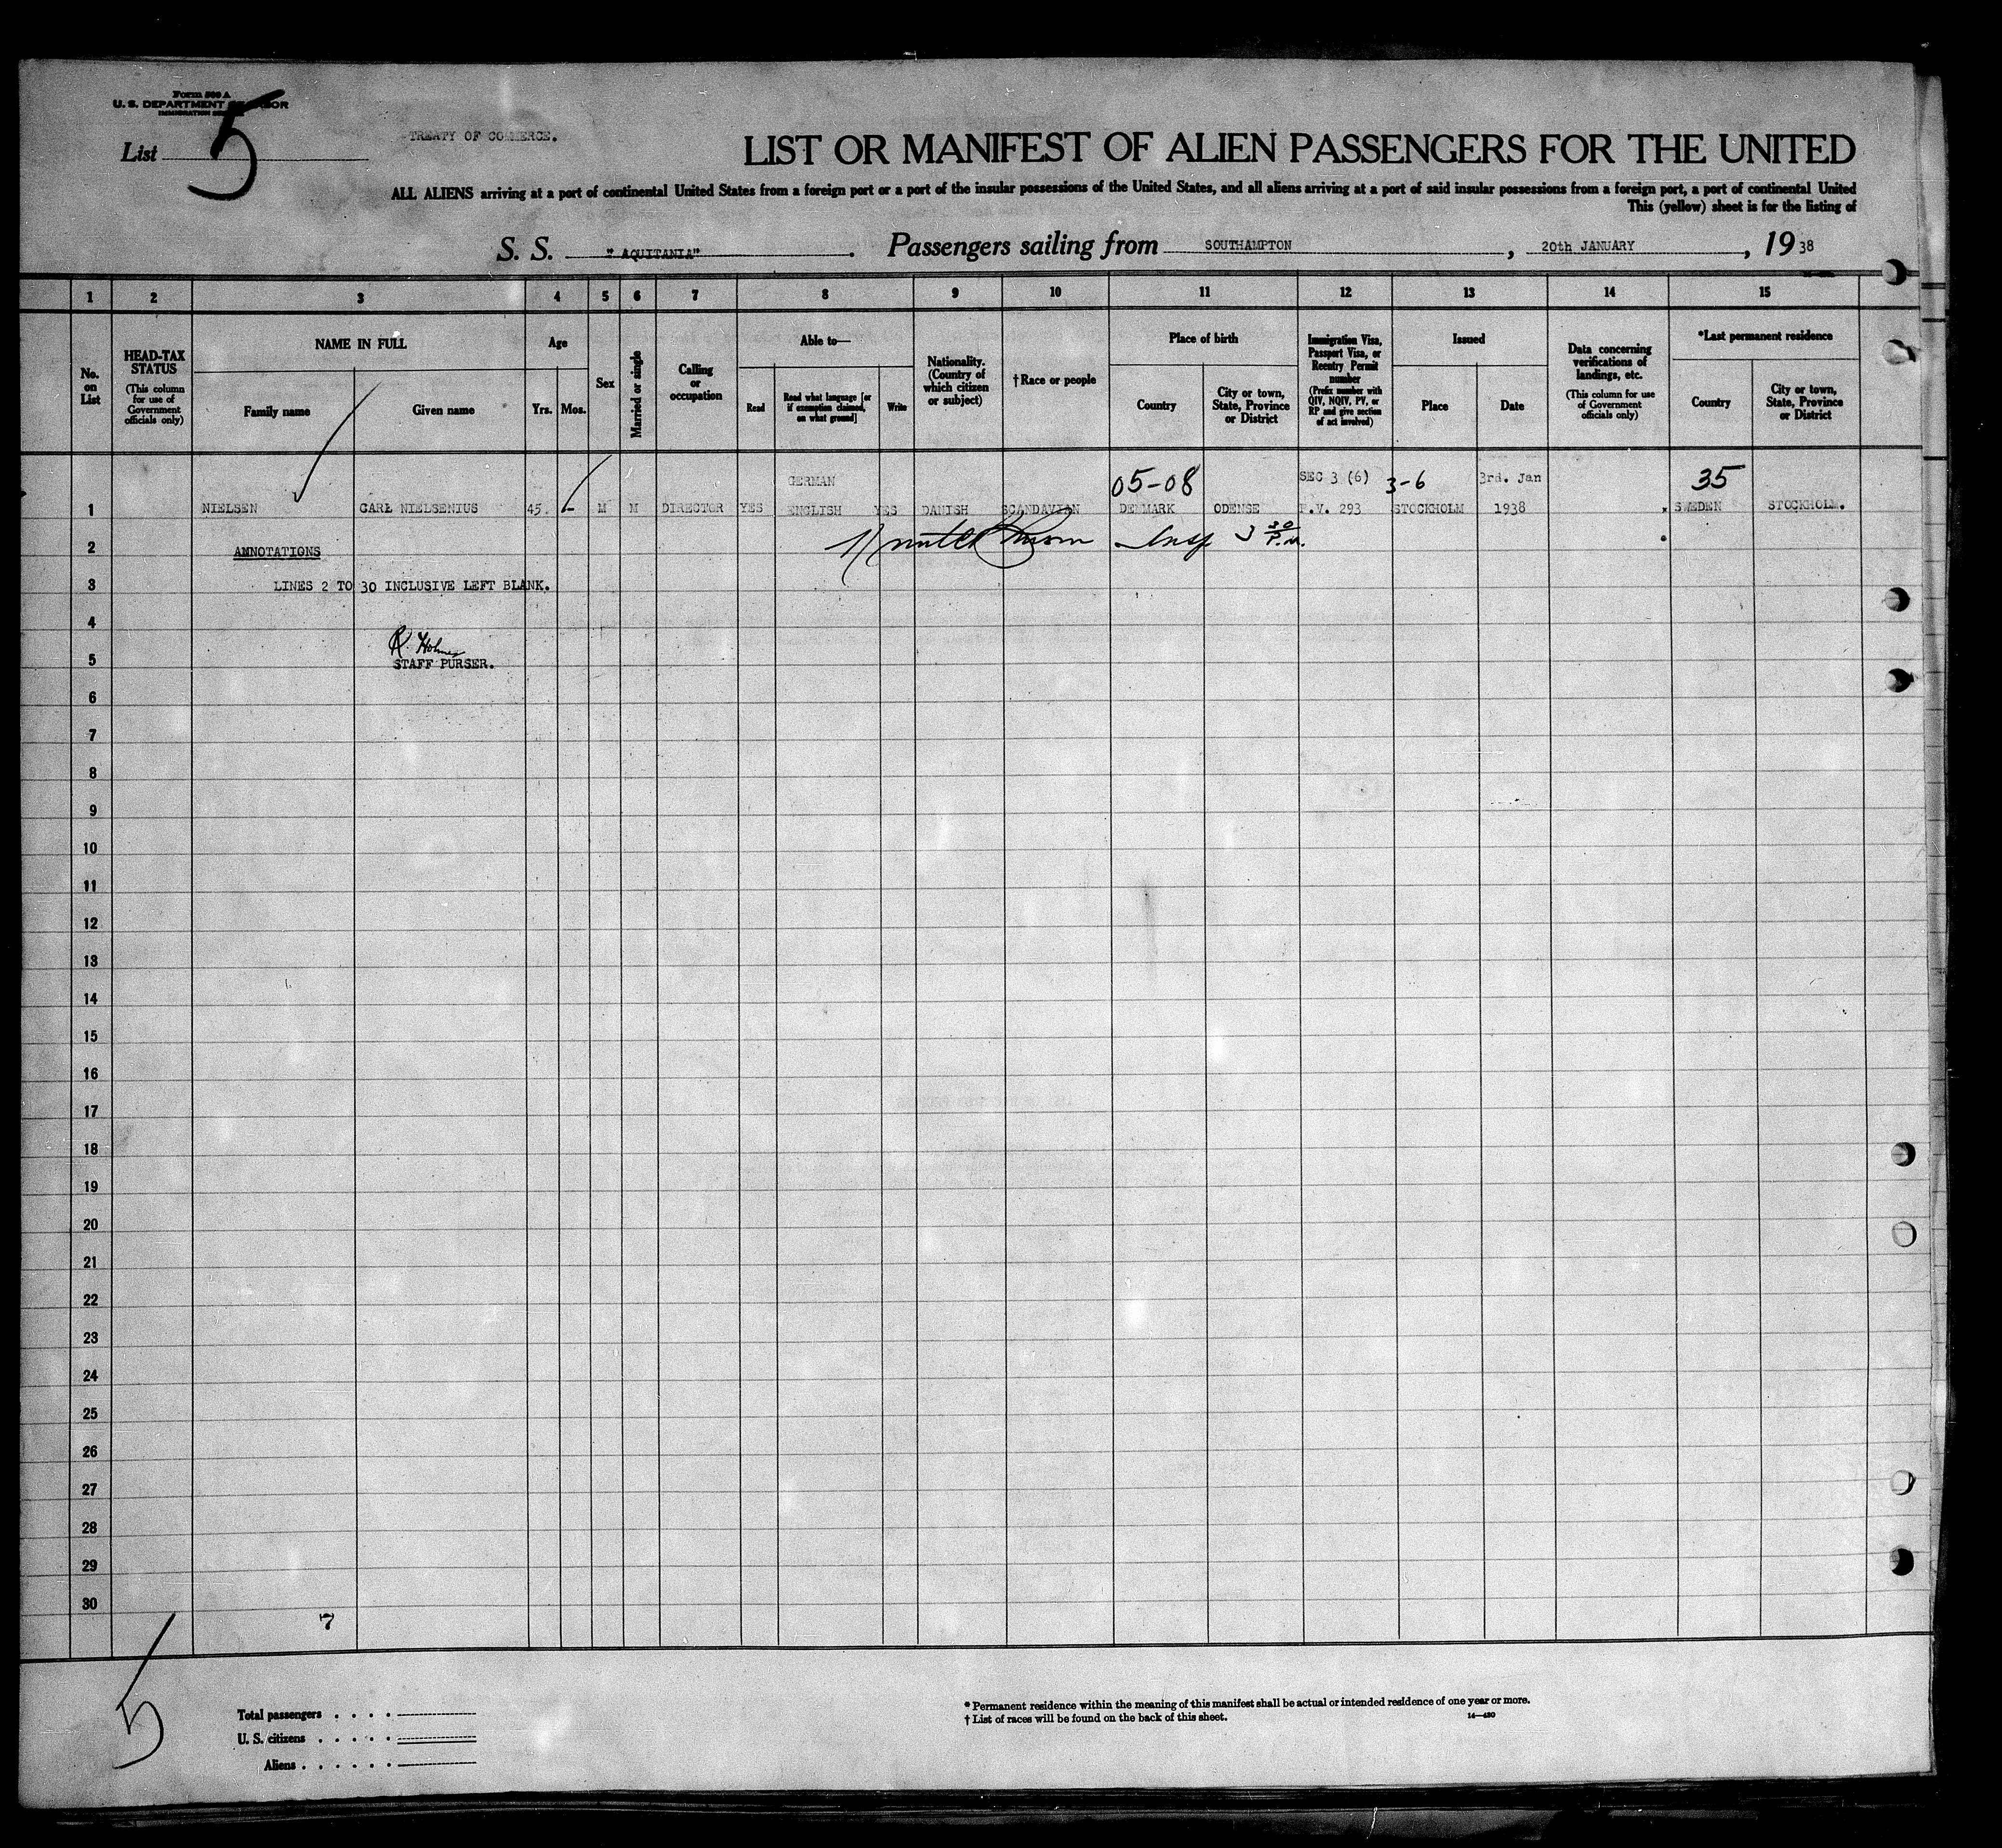 Form 500 A
U. S. DEPARTMENT OF LABOR
IMMIGRATION
List 5
TREATY OF COMMERCE.
LIST OR MANIFEST OF ALIEN PASSENGERS FOR THE UNITED
ALL ALIENS arriving at a port of continental United States from a foreign port or a port of the insular possessions of the United States, and all aliens arriving at a port of said insular possessions from a foreign port, a port of continental United
This (yellow) sheet is for the listing of
S. S. "AQUITANIA". Passengers sailing from SOUTHAMPTON, 20th JANUARY, 1938
1 2 3 4 5 6 7 8 9 10 11 12 13 14 15
No. on List
HEAD-TAX STATUS
(This column for use of Government officials only)
NAME IN FULL
Family name
Given name
Age
Yrs. Mos.
Sex
Married or single
Calling or occupation
Able to—
Read
Read what language [or if exemption claimed, on what ground]
Write
Nationality. (Country of which citizen or subject)
†Race or people
Place of birth
Country
City or town, State, Province or District
Immigration Visa, Passport Visa, or Reentry Permit number
(Prefix number with QIV, NQIV, PV, or RP and give section of act involved)
Issued
Place
Date
Data concerning verifications of landings, etc.
(This column for use of Government officials only)
*Last permanent residence
Country
City or town, State, Province or District
GERMAN 05-08 SEC 3 (6) 3-6 3rd. Jan 35
1 NIELSEN CARL NIELSENIUS 45. - M M DIRECTOR YES ENGLISH YES DANISH SCANDAVIAN DENMARK ODENSE P.V. 293 STOCKHOLM 1938 SWEDEN STOCKHOLM.
2 ANNOTATIONS Insp 3 30 P.M.
3 LINES 2 TO 30 INCLUSIVE LEFT BLANK.
4 R. Holmes
5 STAFF PURSER.
6
7
8
9
10
11
12
13
14
15
16
17
18
19
20
21
22
23
24
25
26
27
28
29
30
7
5
Total passengers . . . .
U. S. citizens . . . . .
Aliens . . . . . .
* Permanent residence within the meaning of this manifest shall be actual or intended residence of one year or more.
† List of races will be found on the back of this sheet. 14—430